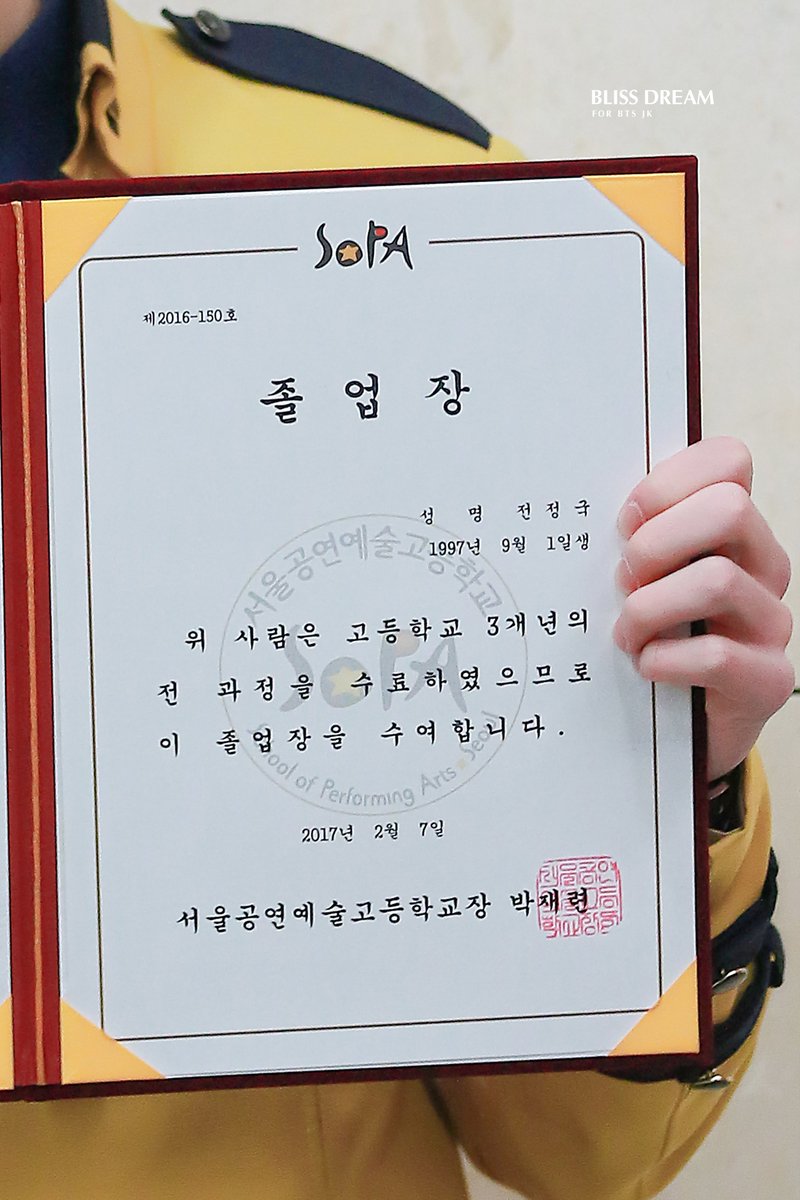 BLISS DREAM
FOR BTS JK
SoPA
제2016-150호
졸 업 장
성 명 전 정 국
1997년 9월 1일생
서울공연예술고등학교
SoPA
School of Performing Arts Seoul
위 사람은 고등학교 3개년의
전 과정을 수료하였으므로
이 졸업장을 수여합니다.
2017년 2월 7일
서울공연예술고등학교장 박재련